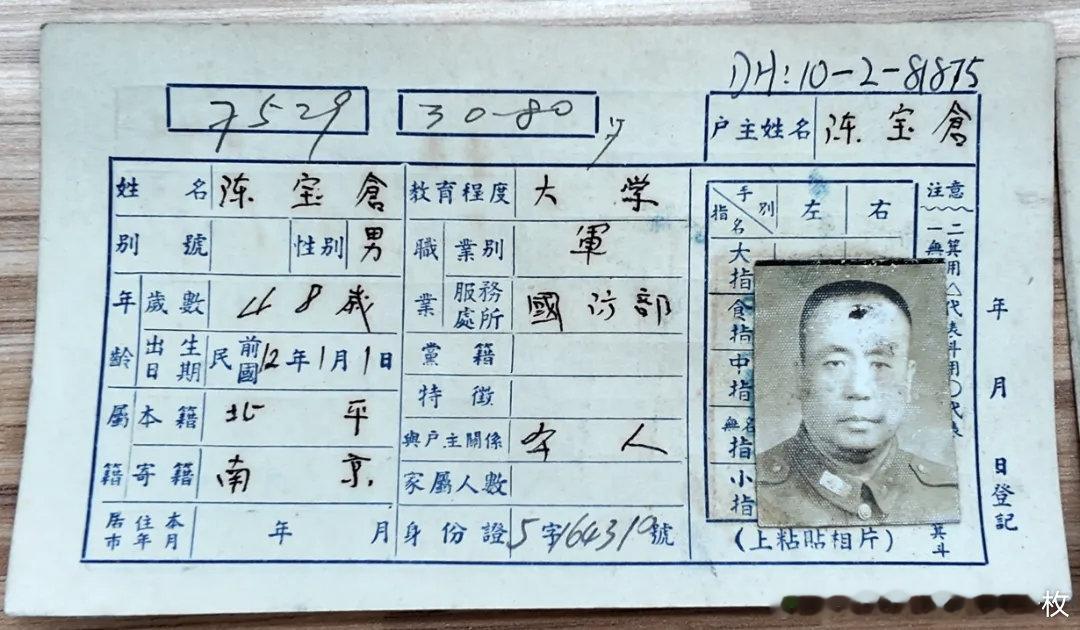 DH:10-2-81875
7529
30-80
户主姓名 陈宝倉
姓名 陈宝倉
别號
性别 男
年齡 歲數 48歲
出生日期 民國前12年1月1日
屬籍 本籍 北平
寄籍 南京
居住本市年月 年 月
教育程度 大学
職業 業别 軍
服務處所 國防部
黨籍
特徵
與戸主關係 本人
家屬人數
身份證 5字164310號
手别 指名 左 右
大指
食指
中指
無名指
小指
(上粘貼相片)
注意
一無
二箕用△代表斗用○代表
箕斗
年 月 日登記
枚